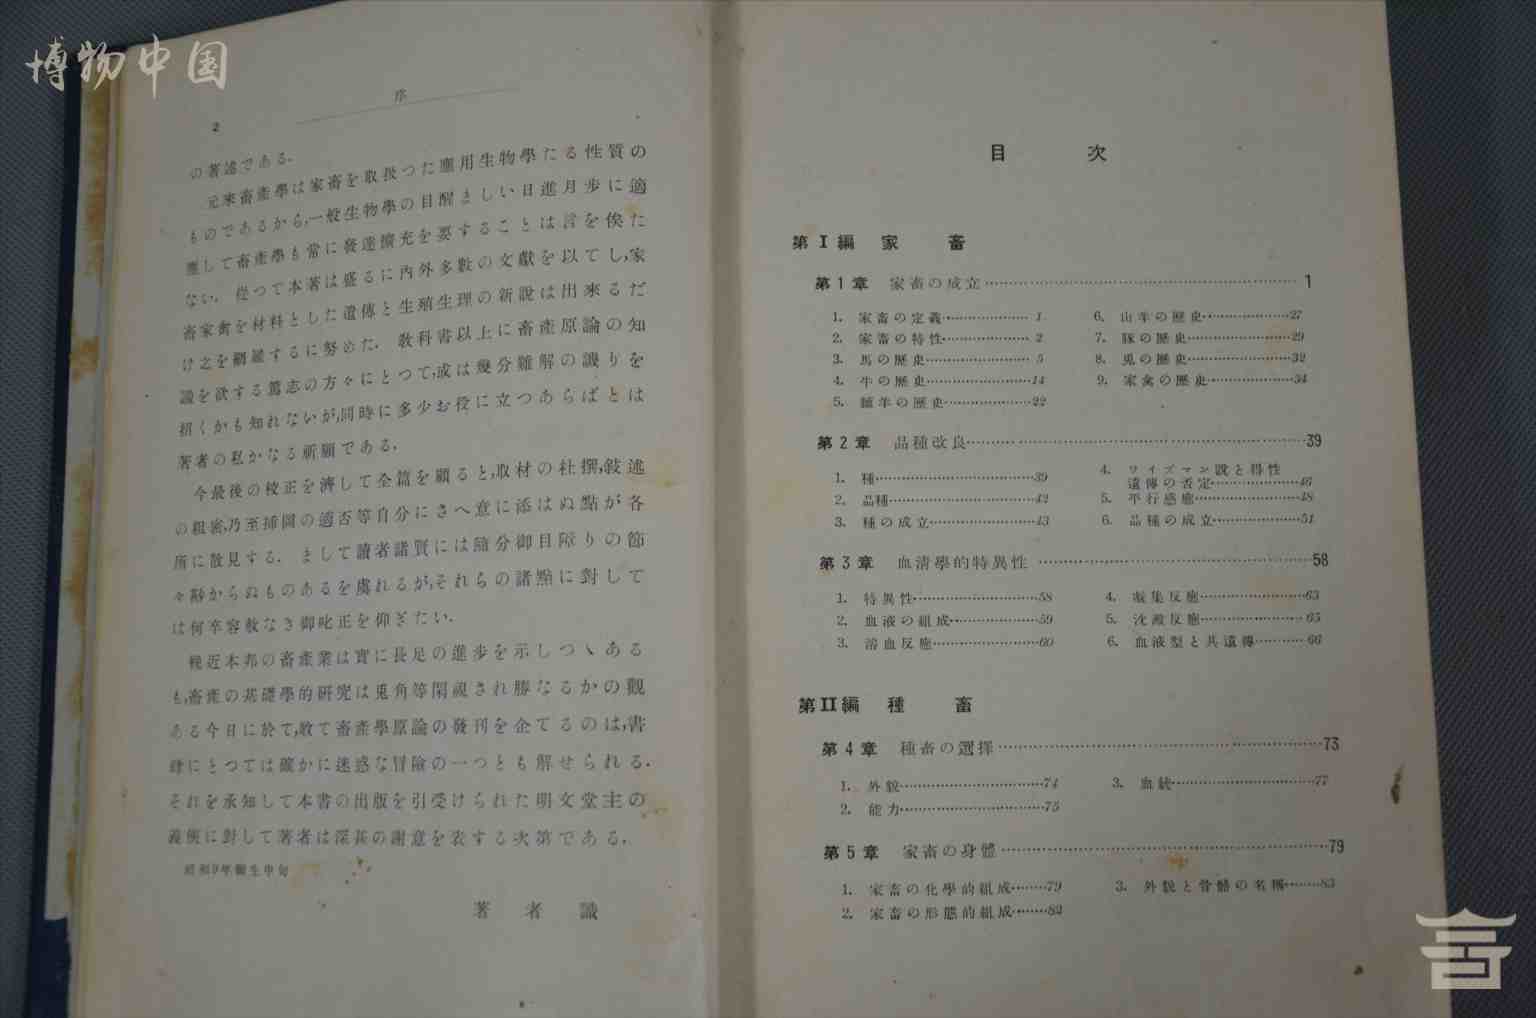 博物中国
序
2
の著述である.
元來畜產學は家畜を取扱つた應用生物學たる性質の
ものであるから,一般生物學の目醒ましい日進月步に適
應して畜產學も常に發達擴充を要することは言を俟た
ない. 從つて本著は盛るに內外多數の文獻を以てし,家
畜家禽を材料とした遺傳と生殖生理の新說は出來るだ
け之を網羅するに努めた. 敎科書以上に畜產原論の知
識を欲する篤志の方々にとつて,或は幾分難解の譏りを
招くかも知れないが,同時に多少お役に立つあらばとは
著者の私かなる祈願である.
今最後の校正を濟して全篇を顧ると,取材の杜撰,敍述
の粗密,乃至揷圖の適否等自分にさへ意に添はぬ點が各
所に散見する. まして讀者諸賢には隨分御目障りの節
々尠からぬものあるを虞れるが,それらの諸點に對して
は何卒容赦なき御叱正を仰ぎたい.
輓近本邦の畜產業は實に長足の進步を示しつゝある
も,畜產の基礎學的硏究は兎角等閑視され勝なるかの觀
ある今日に於て,敢て畜產學原論の發刊を企てるのは,書
肆にとつては確かに迷惑な冒險の一つとも解せられる.
それを承知して本書の出版を引受けられた明文堂主の
義俠に對して著者は深甚の謝意を表する次第である.
昭和9年 中旬
著者識
目次
第I編 家畜
第1章 家畜の成立……1
1. 家畜の定義……1
2. 家畜の特性……2
3. 馬の歷史……5
4. 牛の歷史……14
5. 緬羊の歷史……22
6. 山羊の歷史……27
7. 豚の歷史……29
8. 兎の歷史……32
9. 家禽の歷史……34
第2章 品種改良……39
1. 種……39
2. 品種……42
3. 種の成立……43
4. ワイズマン說と得性
遺傳の否定……46
5. 平行感應……48
6. 品種の成立……51
第3章 血淸學的特異性……58
1. 特異性……58
2. 血液の組成……59
3. 溶血反應……60
4. 凝集反應……63
5. 沈澱反應……65
6. 血液型と其遺傳……66
第II編 種畜
第4章 種畜の選擇……73
1. 外貌……74
2. 能力……75
3. 血統……77
第5章 家畜の身體……79
1. 家畜の化學的組成……79
2. 家畜の形態的組成……82
3. 外貌と骨骼の名稱……83